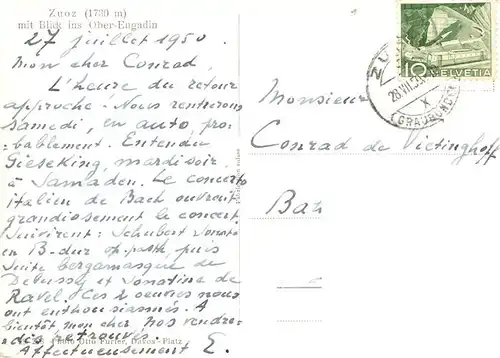 Zuoz (1730 m)
mit Blick ins Ober-Engadin
27 juillet 1950.
Mon cher Conrad,
L'heure du retour
approche. Nous rentrerons
samedi, en auto, pro-
bablement. Entendu
Gieseking, mardi soir,
à Samaden. Le concerto
italien de Bach ouvrait
grandiosement le concert.
Suivirent: Schubert Sonate
en B-dur op. posth, puis
Suite bergamasque de
Debussy et Sonatine de
Ravel. Ces 2 oeuvres nous
ont enthousiasmés. A
bientôt, mon cher, nos rendre-
dis retrouvés.
Foto Otto Furter, Davos-Platz
Affectueusement E.
10 HELVETIA
ZUOZ
28.VII.50
X
(GRAUBÜNDEN)
Monsieur
Conrad de Vietinghoff